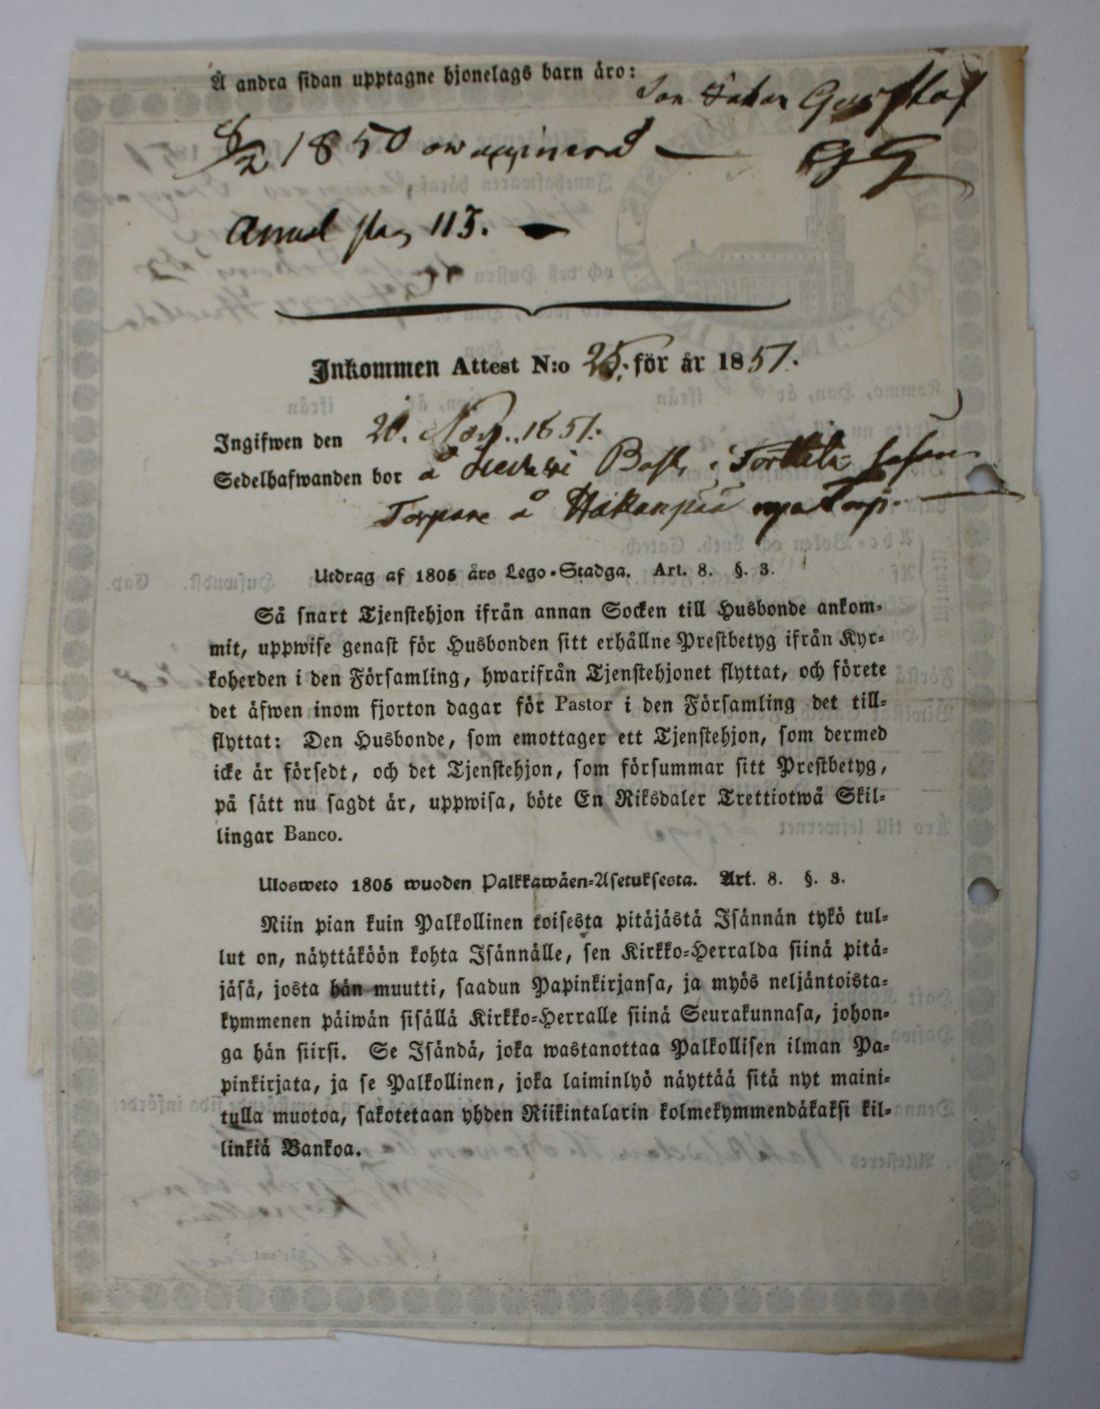 Å andra sidan upptagne hjonelags barn äro: Son Johan Gustaf
8/2 1850 ow
Inkommen Attest N:o 25. för år 1851.
Ingifwen den 20. Nov. 1851.
Sedelhafwanden bor å
Torpare å nya Torp.
Utdrag af 1805 års Lego-Stadga. Art. 8. §. 3.
Så snart Tjenstehjon ifrån annan Socken till Husbonde ankom-
mit, uppwise genast för Husbonden sitt erhållne Prestbetyg ifrån Kyr-
koherden i den Församling, hwarifrån Tjenstehjonet flyttat, och förete
det äfwen inom fjorton dagar för Pastor i den Församling det till-
flyttat: Den Husbonde, som emottager ett Tjenstehjon, som dermed
icke är försedt, och det Tjenstehjon, som försummar sitt Prestbetyg,
på sätt nu sagdt är, uppwisa, böte En Riksdaler Trettiotwå Skil-
lingar Banco.
Ulosweto 1805 wuoden Palkkawäen-Asetuksesta. Art. 8. §. 3.
Niin pian kuin Palkollinen toisesta pitäjästä Isännän tykö tul-
lut on, näyttäköön kohta Isännälle, sen Kirkko-Herralda siinä pitä-
jäsä, josta hän muutti, saadun Papinkirjansa, ja myös neljäntoista-
kymmenen päiwän sisällä Kirkko-Herralle siinä Seurakunnasa, johon-
ga hän siirsi. Se Isändä, joka wastanottaa Palkollisen ilman Pa-
pinkirjata, ja se Palkollinen, joka laiminlyö näyttää sitä nyt maini-
tulla muotoa, sakotetaan yhden Riikintalarin kolmekymmendäkaksi kil-
linkiä Bankoa.